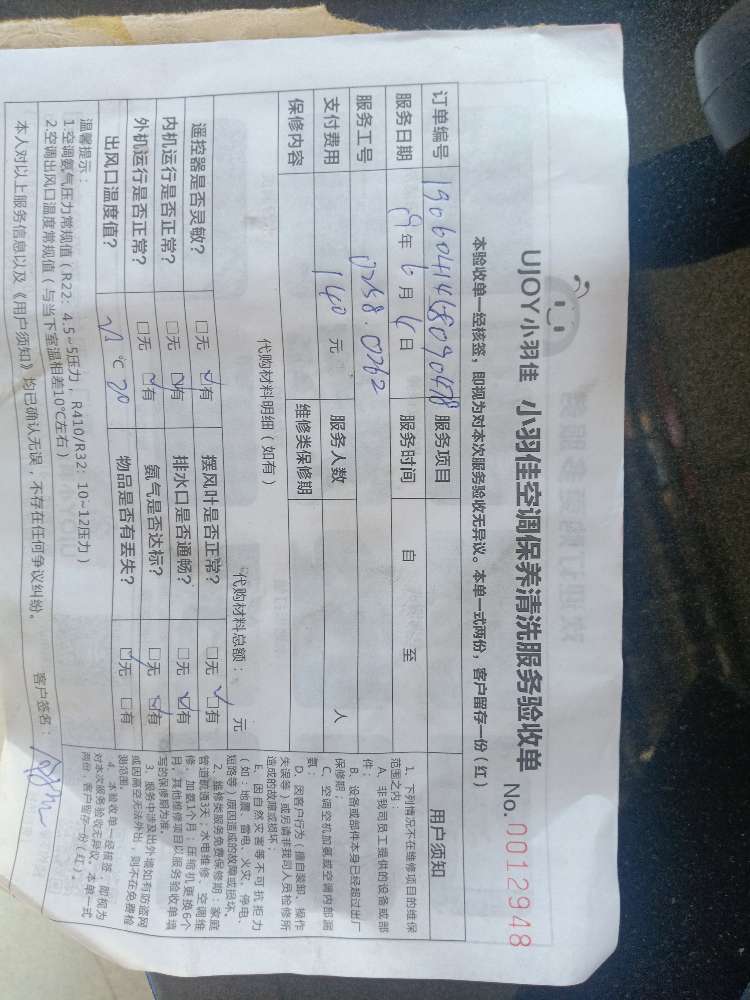 UJOY小羽佳 小羽佳空调保养清洗服务验收单
No.0012948
本验收单一经核签，即视为对本次服务验收无异议。本单一式两份，客户留存一份（红）
订单编号 服务项目
服务日期 19年6月4日 服务时间 自 至
服务工号 0258.0262
支付费用 140元 服务人数 人
保修内容 维修类保修期
代购材料明细（如有）
代购材料总额： 元
遥控器是否灵敏? □无 ☑有 摆风叶是否正常? □无 ☑有
内机运行是否正常? □无 ☑有 排水口是否通畅? □无 ☑有
外机运行是否正常? □无 ☑有 氨气是否达标? □无 ☑有
出风口温度值? ℃ 物品是否有丢失? ☑无 □有
温馨提示：
1.空调氨气压力常规值（R22: 4.5~5压力，R410/R32: 10~12压力）
2.空调出风口温度常规值（与当下室温相差10℃左右）
本人对以上服务信息以及《用户须知》均已确认无误，不存在任何争议纠纷。 客户签名：
用户须知
1、下列情况不在维修项目的维保
范围之内：
A、非我司员工提供的设备或部
件；
B、设备或部件本身已经超过出厂
保修期；
C、空调空机加氨或空调内部漏
氨；
D、因客户行为（擅自装卸、操作
失误等）或另请非我司人员检修所
造成的故障或损坏；
E、因自然灾害等不可抗拒力
（如：地震、雷电、火灾、停电、
短路等）原因造成的故障或损坏。
2、维修类服务免费保修期：家庭
管道疏通3天；水电维修、空调维
修、加氨1个月；压缩机更换6个
月，其他维修项目以服务验收单填
写的保修期为准。
3、服务中涉及出外墙如有防盗网
或因高空无法外出，则不在免费检
测范围。
4、本验收单一经核签，即视为
对本次服务验收无异议。本单一式
两份，客户留存一份（红）。